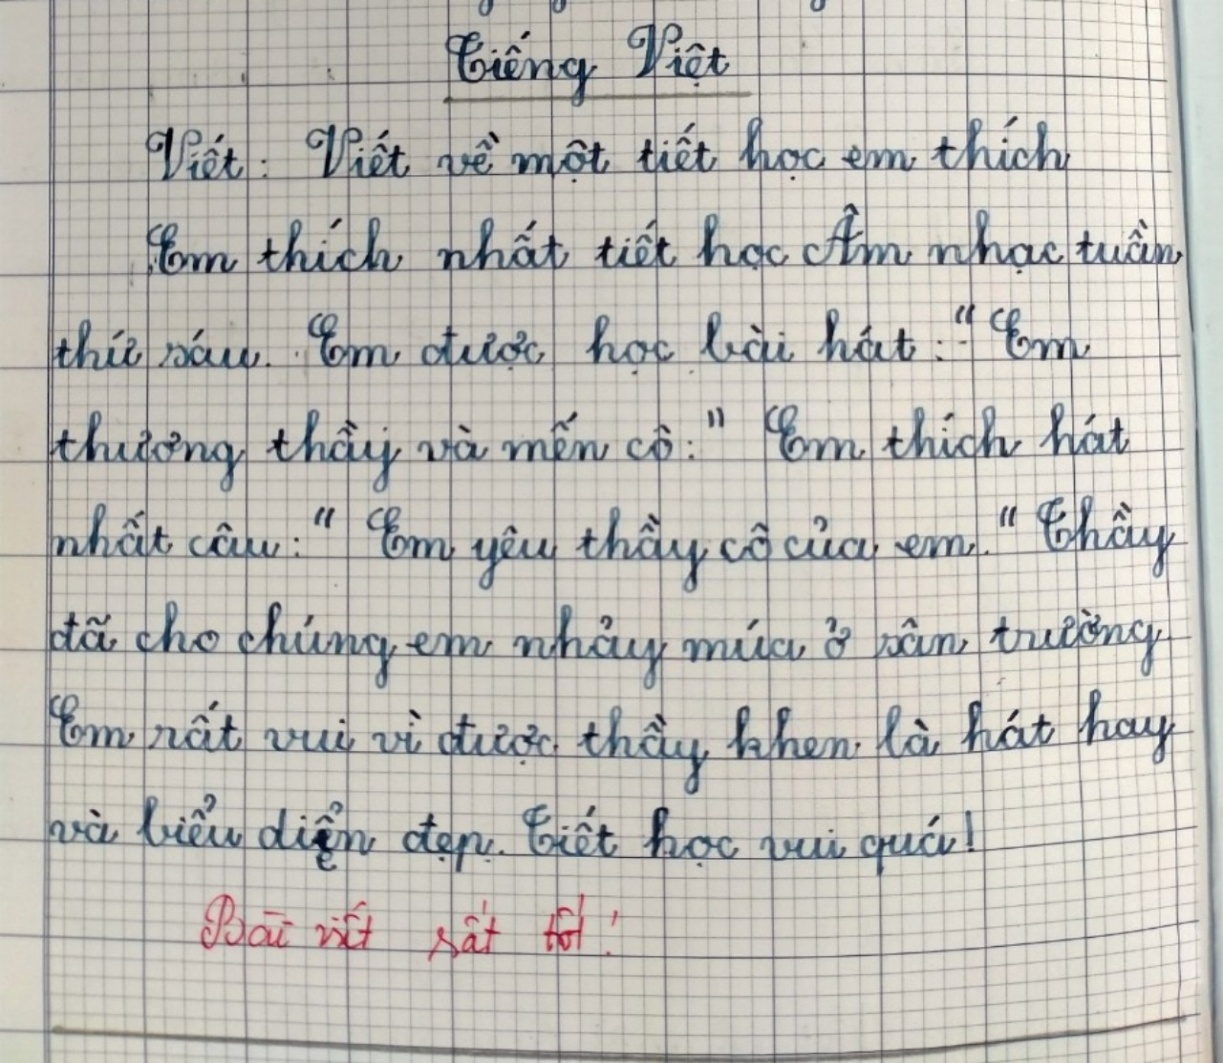 Tiếng Việt
Viết: Viết về một tiết học em thích
Em thích nhất tiết học Âm nhạc tuần
thứ sáu. Em được học bài hát: "Em
thương thầy và mến cô:" Em thích hát
nhất câu: "Em yêu thầy cô của em." Thầy
đã cho chúng em nhảy múa ở sân trường
Em rất vui vì được thầy khen là hát hay
và biểu diễn đẹp. Tiết học vui quá!
Bài viết rất tốt!